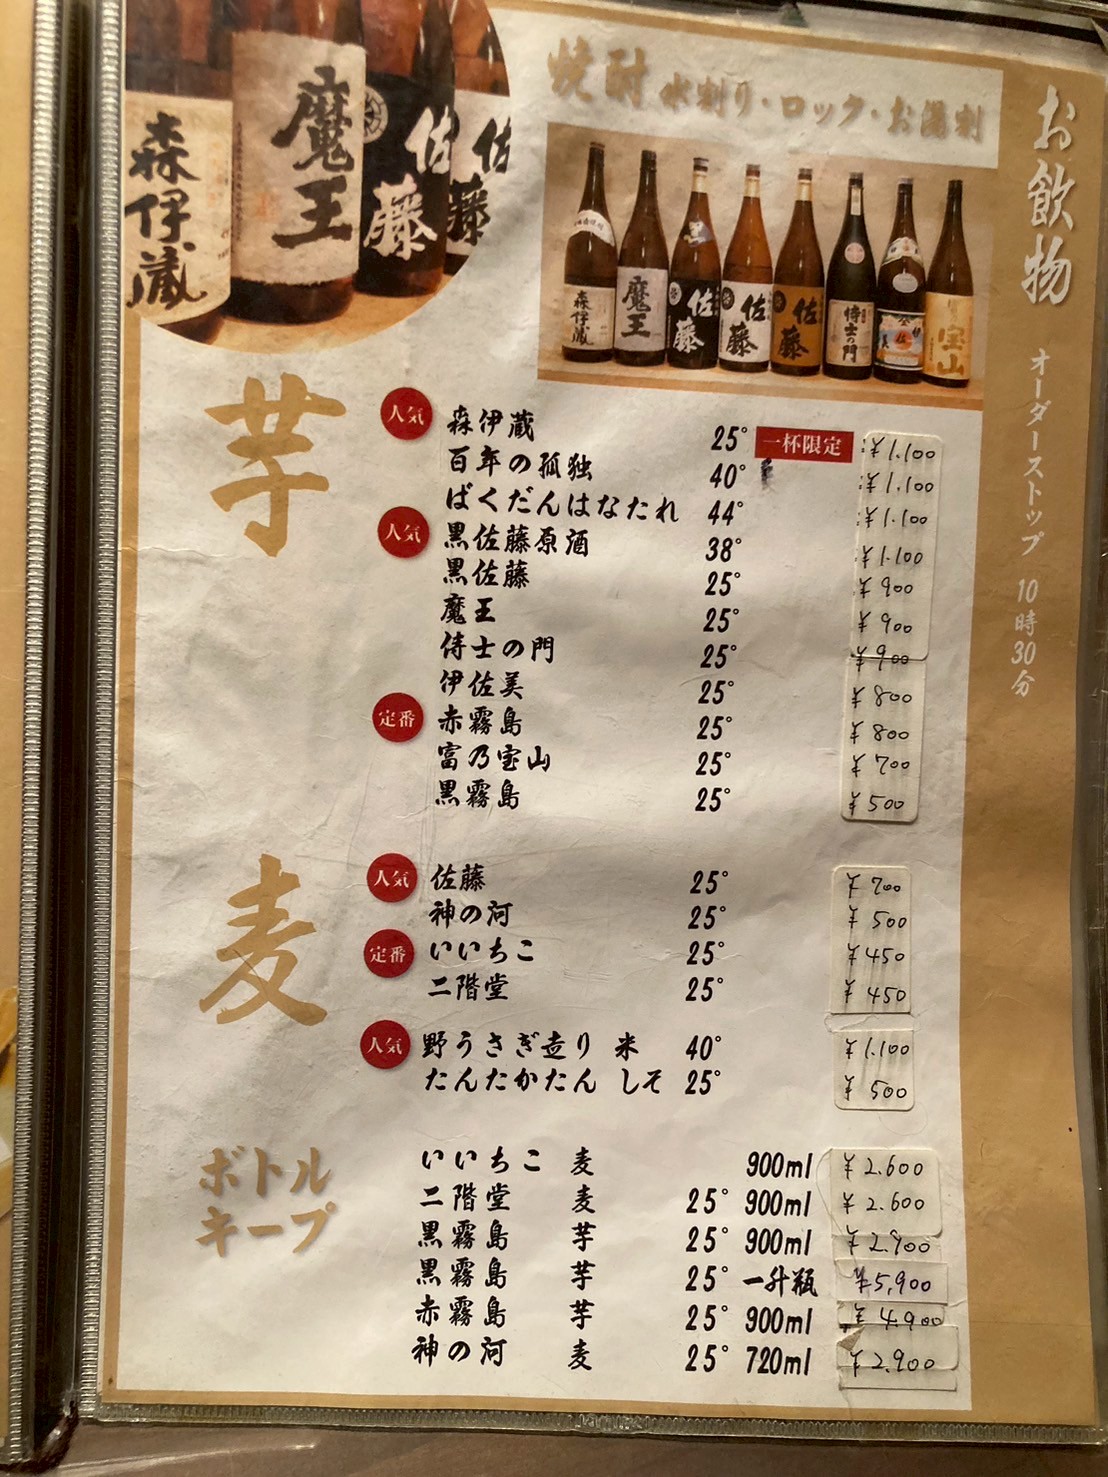 お飲物
オーダーストップ 10時30分
焼酎 水割り・ロック・お湯割
森伊蔵
魔王
佐藤
佐藤
森伊蔵
魔王
黒
佐藤
佐藤
佐藤
侍士の門
伊佐美
宝山
芋
人気 森伊蔵 25° 一杯限定 ¥1.100
百年の孤独 40° ¥1.100
ばくだんはなたれ 44° ¥1.100
人気 黒佐藤原酒 38° ¥1.100
黒佐藤 25° ¥900
魔王 25° ¥900
侍士の門 25° ¥900
伊佐美 25° ¥800
定番 赤霧島 25° ¥800
富乃宝山 25° ¥700
黒霧島 25° ¥500
麦
人気 佐藤 25° ¥700
神の河 25° ¥500
定番 いいちこ 25° ¥450
二階堂 25° ¥450
人気 野うさぎ造り 米 40° ¥1.100
たんたかたん しそ 25° ¥500
ボトルキープ
いいちこ 麦 900ml ¥2.600
二階堂 麦 25° 900ml ¥2.600
黒霧島 芋 25° 900ml ¥2.900
黒霧島 芋 25° 一升瓶 ¥5,900
赤霧島 芋 25° 900ml ¥4.900
神の河 麦 25° 720ml ¥2.900